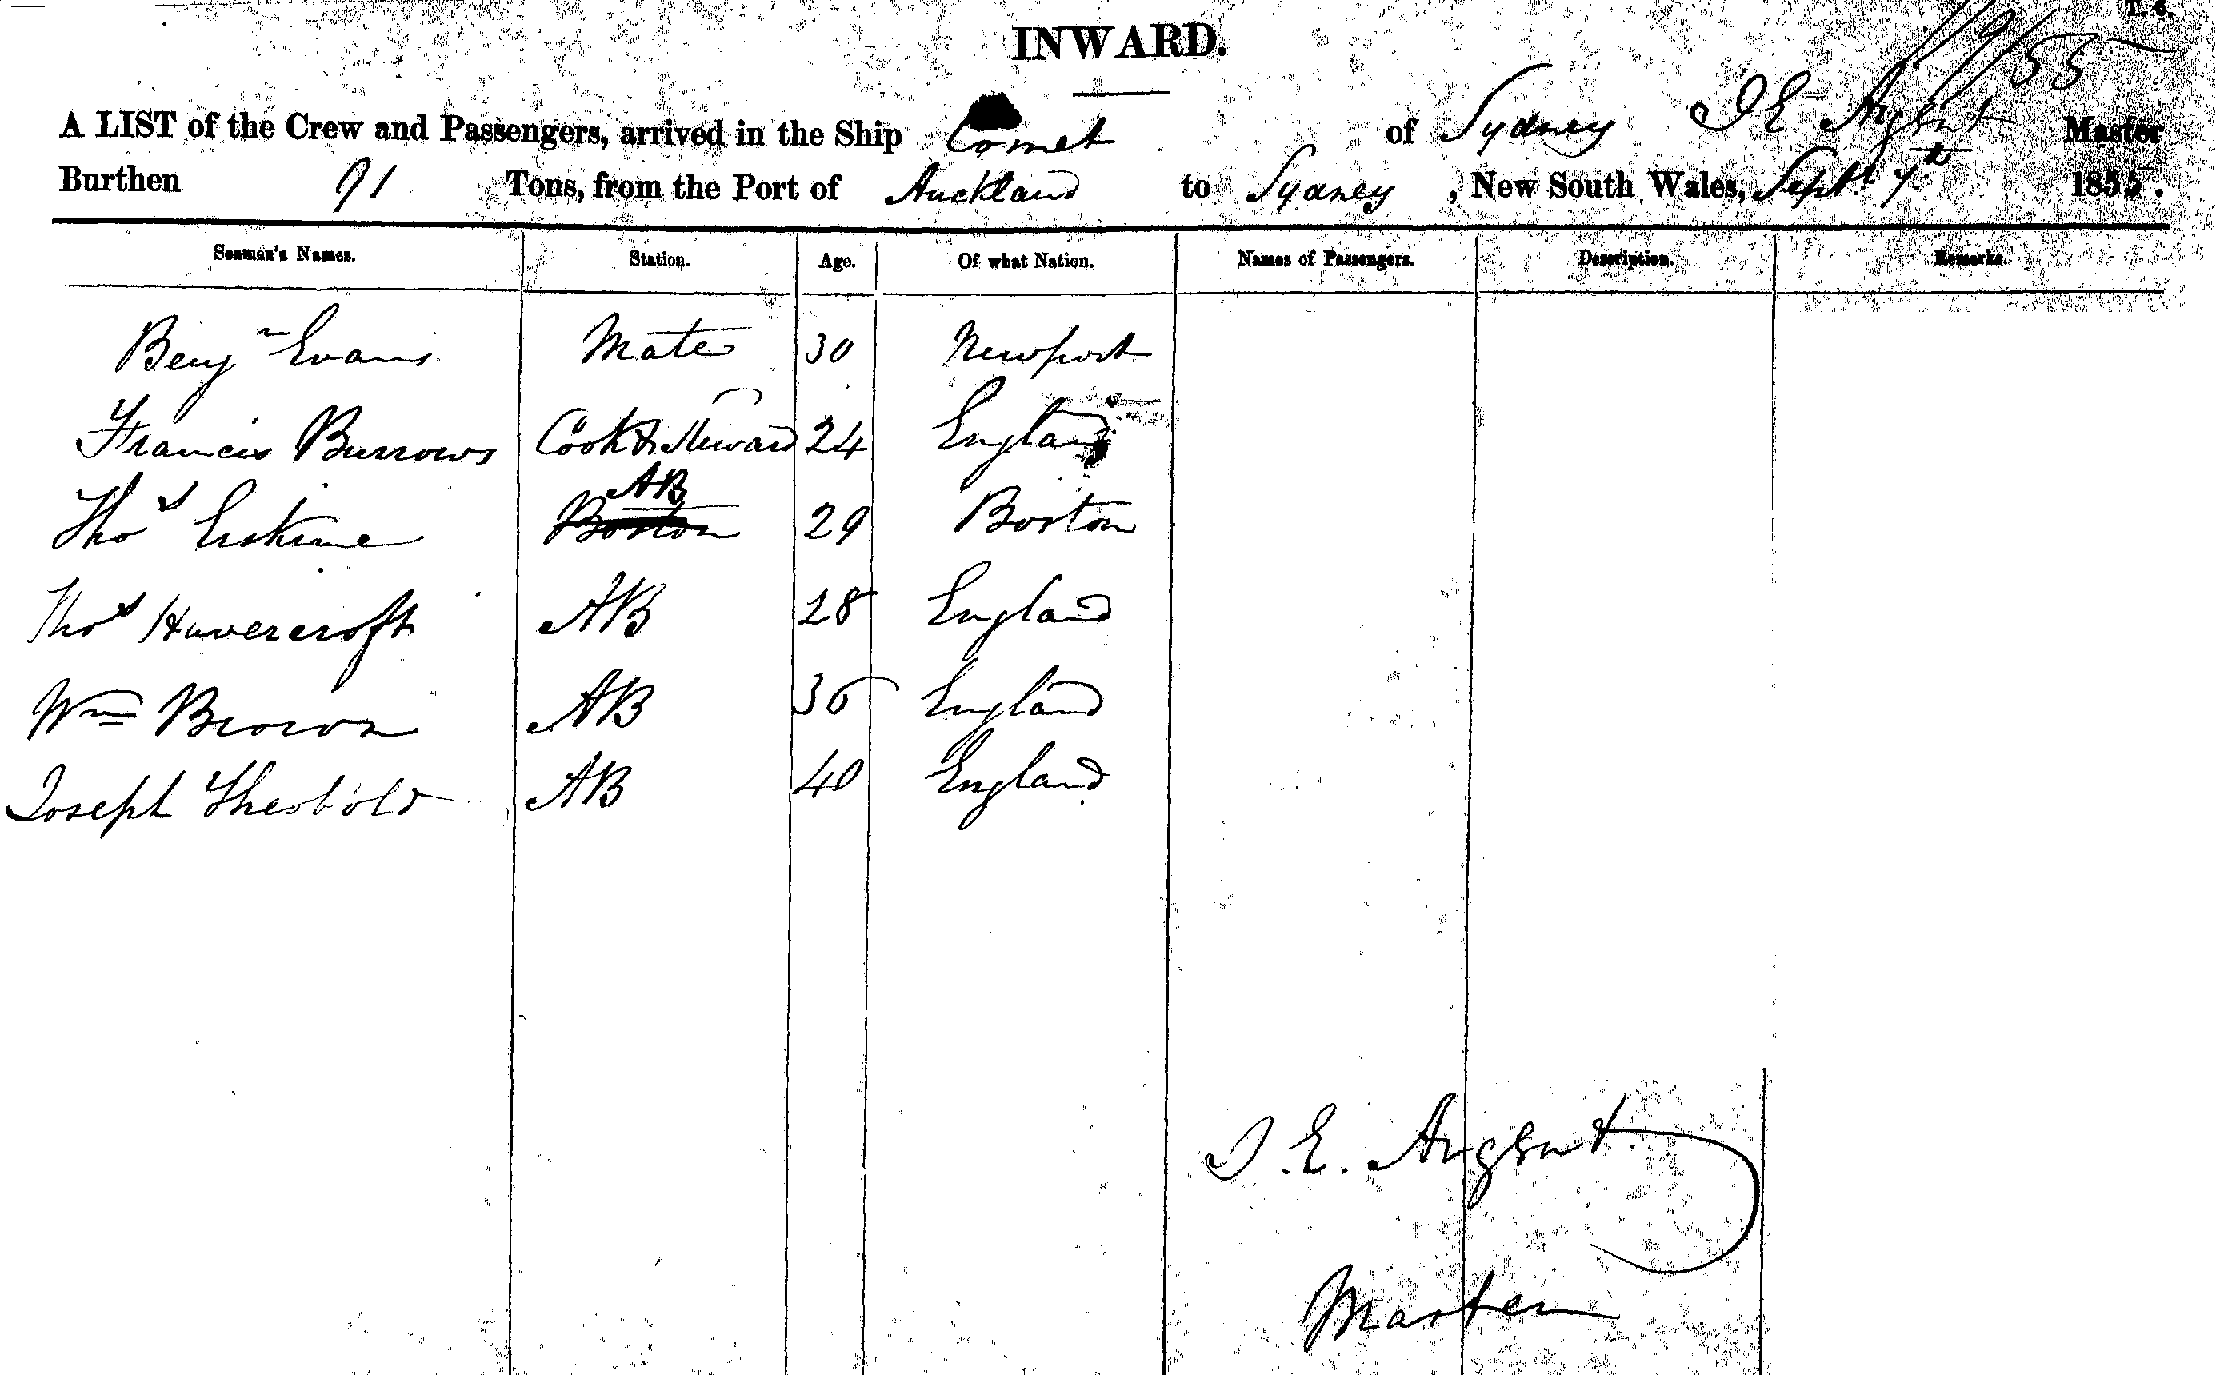 INWARD.
55
A LIST of the Crew and Passengers, arrived in the Ship Comet of Sydney I E Argent Master
Burthen 91 Tons, from the Port of Auckland to Sydney, New South Wales, Sept. 7th 1855.
Seaman's Names. Station. Age. Of what Nation. Names of Passengers. Description. Remarks.
Benjn Evans Mate 30 Newport
Francis Burrows Cook & Steward 24 England
AB
Thos Erskine Boston 29 Boston
Thos Havercroft AB 28 England
Wm Brown AB 36 England
Joseph Theobold AB 40 England
I. E. Argent
Master